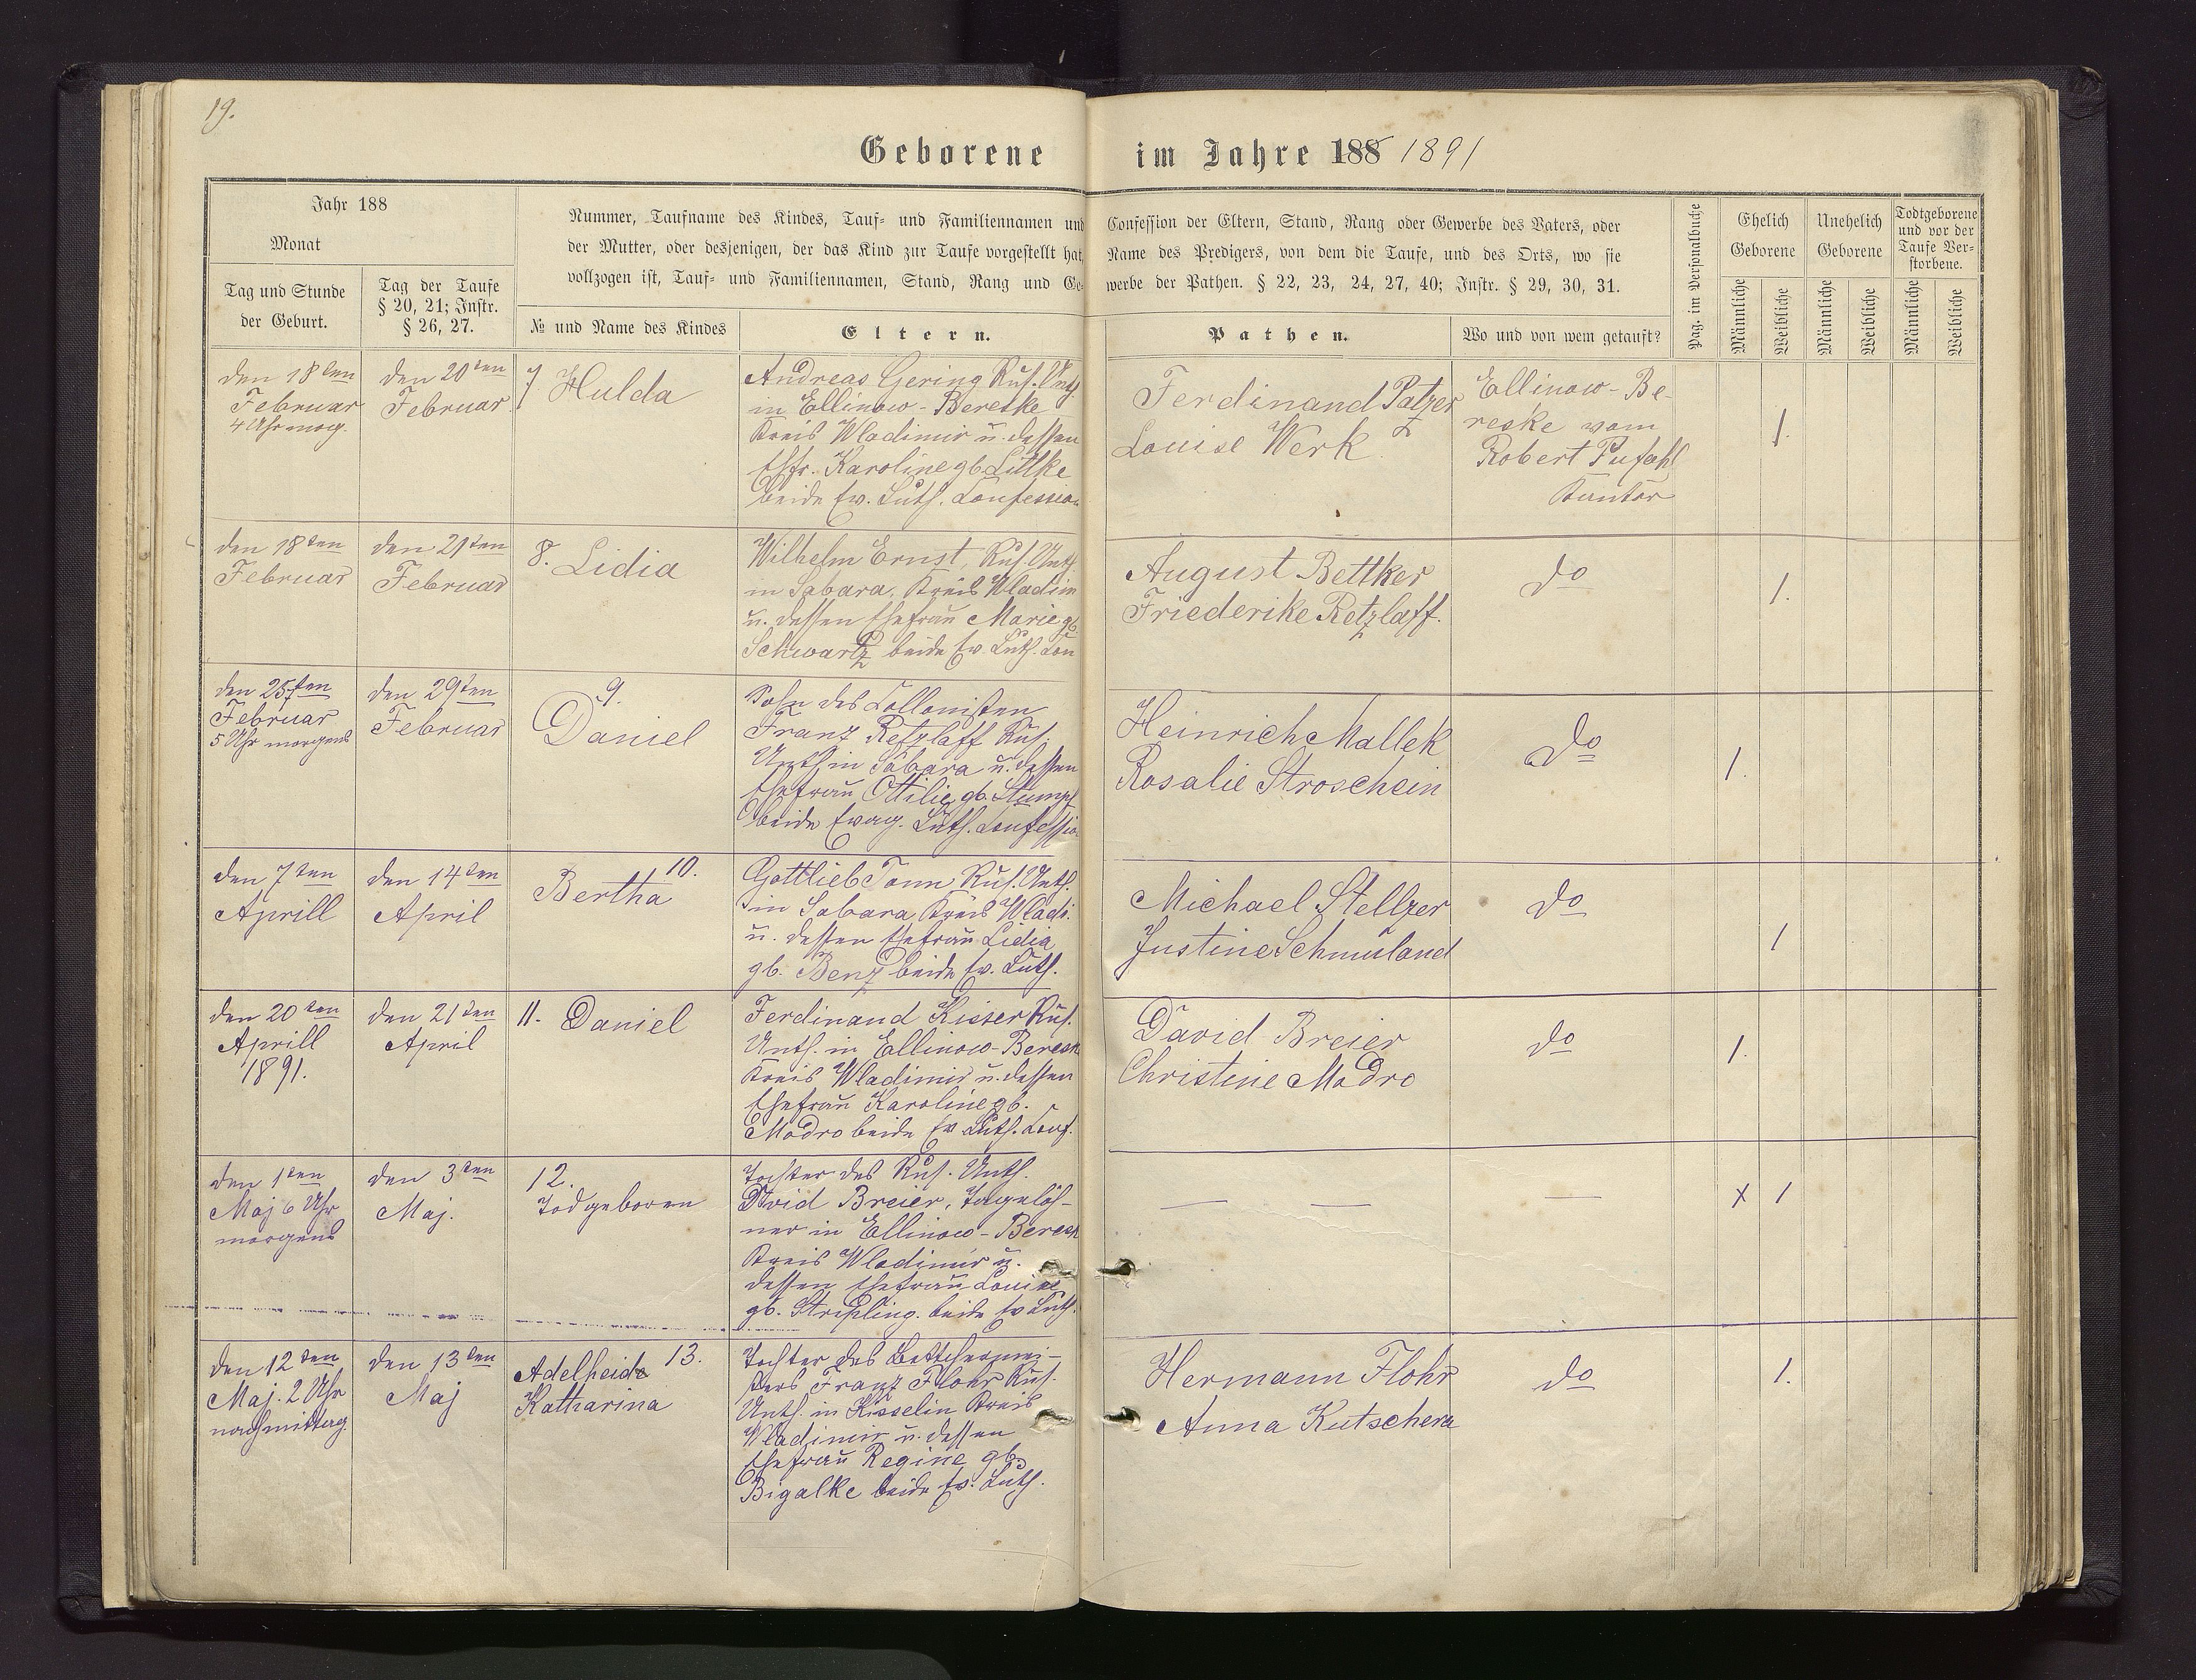 19.
Geborene im Jahre 188 1891
Jahr 188
Monat
Tag und Stunde
der Geburt.
Tag der Taufe
§ 20, 21; Instr.
§ 26, 27.
Nummer, Taufname des Kindes, Tauf- und Familiennamen und
der Mutter, oder desjenigen, der das Kind zur Taufe vorgestellt hat,
vollzogen ist, Tauf- und Familiennamen, Stand, Rang und Ge-
№ und Name des Kindes
Eltern.
Confession der Eltern, Stand, Rang oder Gewerbe des Vaters, oder
Name des Predigers, von dem die Taufe, und des Orts, wo sie
werbe der Pathen. § 22, 23, 24, 27, 40; Instr. § 29, 30, 31.
Pathen.
Wo und von wem getauft?
Pag. im Personalbuche
Ehelich
Geborene
Unehelich
Geborene
Todtgeborene
und vor der
Taufe Ver-
storbene.
Männliche
Weibliche
Männliche
Weibliche
Männliche
Weibliche
den 18ten
Februar
4 Uhr morg.
den 20ten
Februar
7 Hulda
Andreas Gering Rus. Unth.
in Ellinow-Bereske
Kreis Wladimir u. dessen
Ehfr. Karoline gb. Littke
beide Ev. Luth. Confession
Ferdinand Patzer
Louise Werk
Ellinow-Be-
reske vom
Robert Pufahl
Kantor
1.
den 18ten
Februar
den 21ten
Februar
8. Lidia
Wilhelm Ernst, Rus. Unth.
in Sabara, Kreis Wladim
u. dessen Ehefrau Marie gb
Schwartz beide Ev. Luth. Con
August Bettker
Friederike Retzlaff.
do
1.
den 25ten
Februar
5 Uhr morgens
den 29ten
Februar
9.
Daniel
Sohn des Collonisten
Franz Retzlaff Rus.
Unth in Sabara u. dessen
Ehefrau Ottilie gb. Stumpf
beide Evag. Luth. Confessio
Heinrich Mallek
Rosalie Stroschein
do
1.
den 7ten
Aprill
den 14ten
April
10.
Bertha
Gottlieb Tonn Rus. Unth.
in Sabara Kreis Wladi.
u. dessen Ehefrau Lidia
gb. Benz beide Ev. Luth.
Michael Stellzer
Justine Schmuland
do
1
den 20ten
Aprill
1891.
den 21ten
April
11. Daniel
Ferdinand Kisser Rus.
Unth. in Ellinow-Beresk
Kreis Wladimir u. dessen
Ehefrau Karoline gb.
Modro beide Ev Luth. Conf.
David Breier
Christine Modro
do
1.
den 1ten
Maj 6 Uhr
morgens
den 3ten
Maj.
12.
Todgeboren
Tochter des Rus. Unth.
David Breier, Tagelöh-
ner in Ellinow-Beresk
Kreis Wladimir u.
dessen Ehefrau Louise
gb. Stripling. beide Ev Luth.
— —
—
x 1
den 12ten
Maj. 2 Uhr
nachmittag.
den 13ten
Maj
13.
Adelheid
Katharina
Tochter des Bettchermei-
sters Franz Flohr Rus.
Unth. in Kisselin Kreis
Wladimir u. dessen
Ehefrau Regine gb.
Bigalke beide Ev. Luth.
Hermann Flohr
Anna Kutschera
do
1.